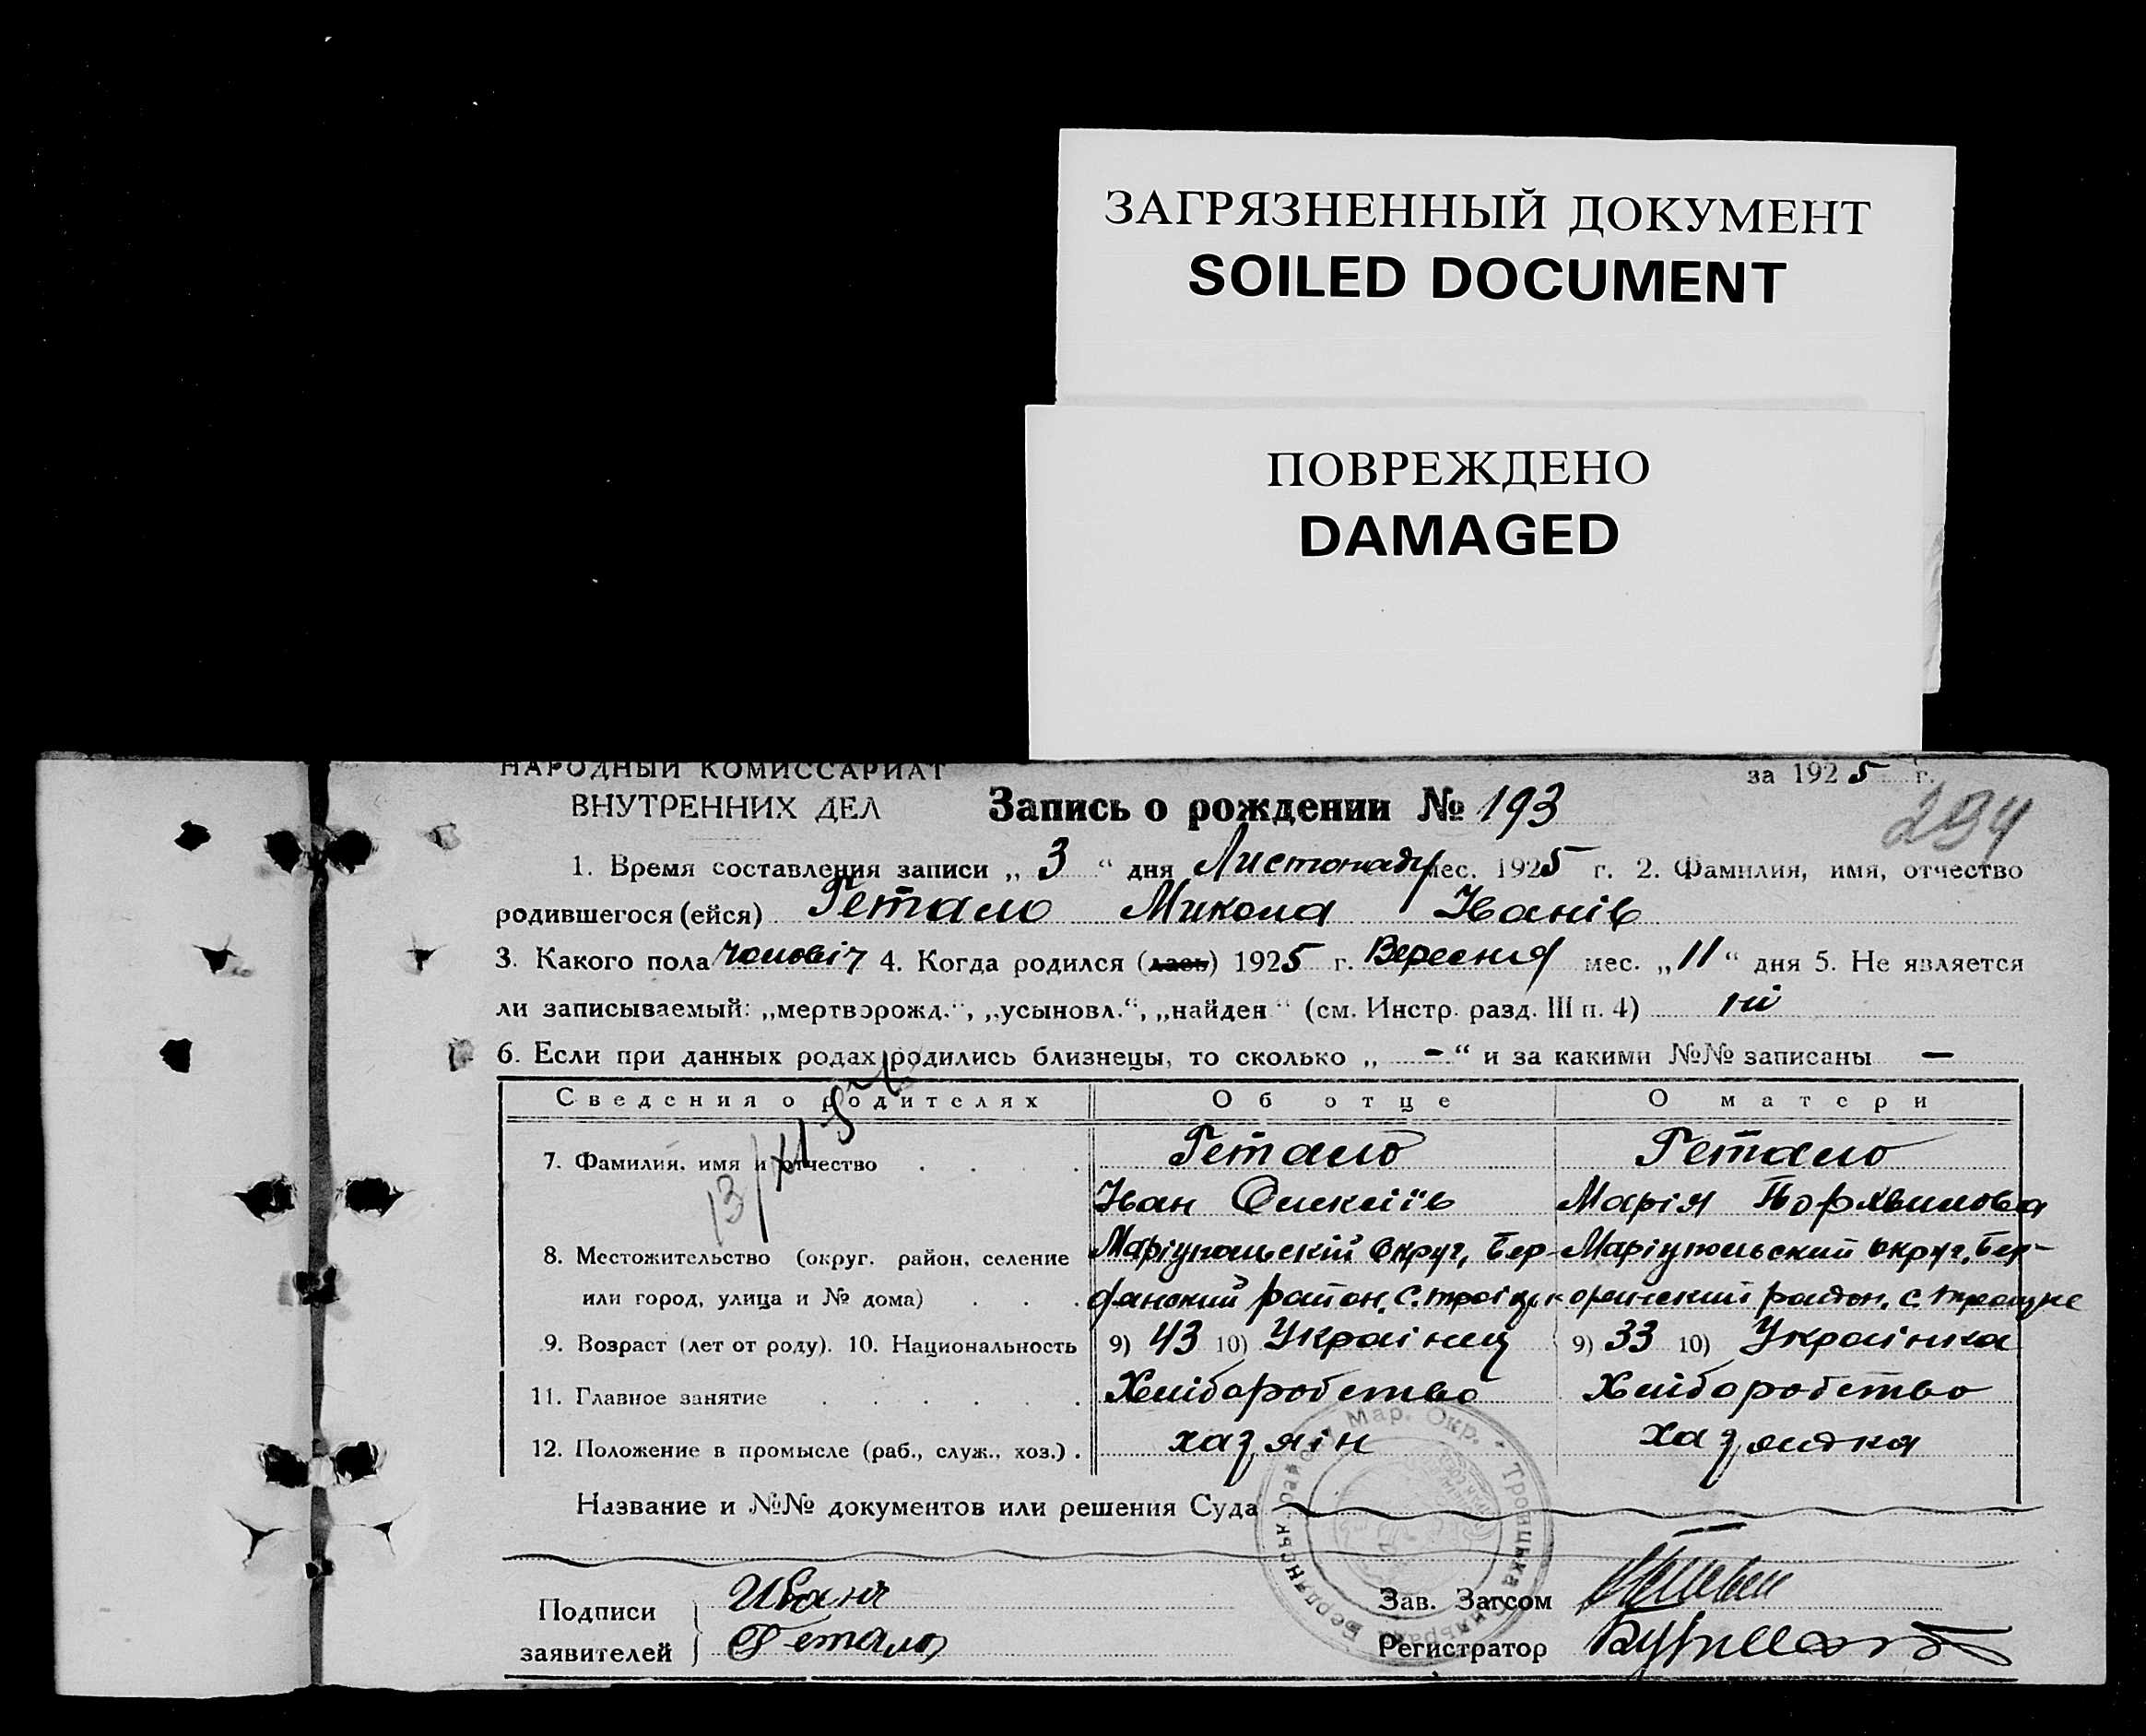 ЗАГРЯЗНЕННЫЙ ДОКУМЕНТ
SOILED DOCUMENT
ПОВРЕЖДЕНО
DAMAGED
НАРОДНЫЙ КОМИССАРИАТ
ВНУТРЕННИХ ДЕЛ
за 1925 г.
Запись о рождении № 193
294
1. Время составления записи „ 3 “ дня Листопаду мес. 1925 г. 2. Фамилия, имя, отчество
родившегося (ейся) Гетало Микола Іванів
3. Какого пола чоловіч 4. Когда родился (лась) 1925 г. Вересня мес. „ 11 “ дня 5. Не является
ли записываемый: „мертворожд.“, „усыновл.“, „найден“ (см. Инстр. разд. III п. 4) ні
6. Если при данных родах родились близнецы, то сколько „ - “ и за какими №№ записаны —
Сведения о родителях Об отце О матери
7. Фамилия, имя и отчество Гетало Гетало
13/XI
Іван Олексіїв Марія
8. Местожительство (округ, район, селение Маріупольскій округ, Бер- Маріупольский округ, Бер-
или город, улица и № дома) дянский район, с. Троіцьк район, с. Троіцке
9. Возраст (лет от роду). 10. Национальность 9) 43 10) Украінец 9) 33 10) Украінка
11. Главное занятие Хліборобство Хліборобство
12. Положение в промысле (раб., служ., хоз.) . хазяін хазяйка
Название и №№ документов или решения Суда
Бердянськ. район Мар. Окр. * Троицька сильрада
Подписи заявителей Ивана Гетало
Зав. Загсом
Регистратор